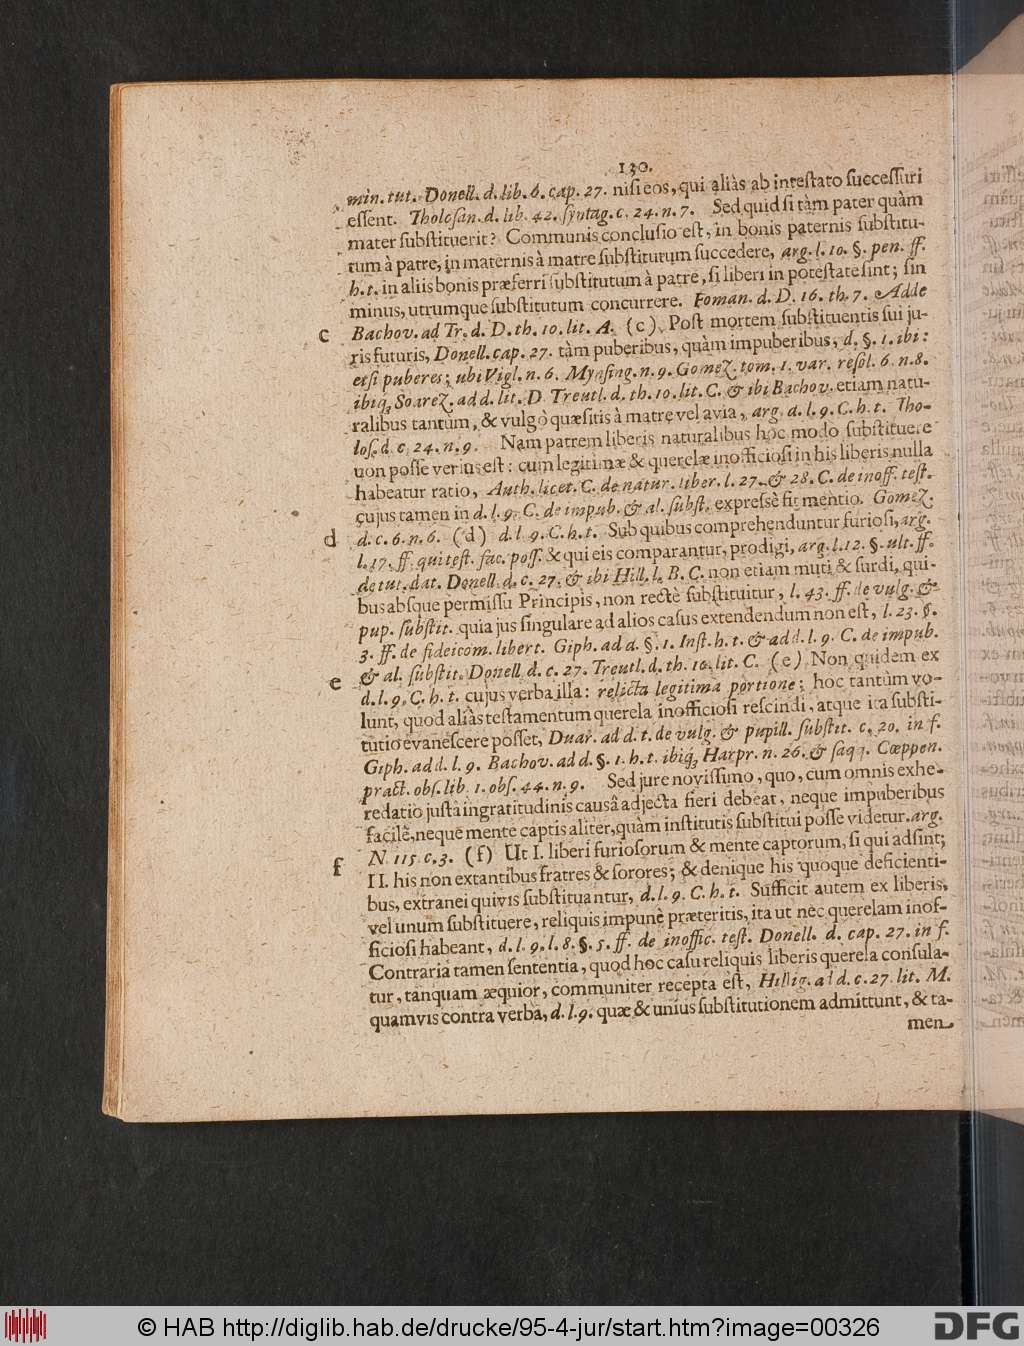 130.
min. tut. Donell. d. lib. 6. cap. 27. nisi eos, qui aliàs ab intestato successuri
essent. Tholosan. d. lib. 42. syntag. c. 24. n. 7. Sed quid si tàm pater quàm
mater substituerit? Communis conclusio est, in bonis paternis substitu-
tum à patre, in maternis à matre substitutum succedere, arg. l. 10. §. pen. ff.
h. t. in aliis bonis præferri substitutum à patre, si liberi in potestate sint; sin
minus, utrumque substitutum concurrere. Foman. d. D. 16. th. 7. Adde
c Bachov. ad Tr. d. D. th. 10. lit. A. (c) Post mortem substituentis sui ju-
ris futuris, Donell. cap. 27. tàm puberibus, quàm impuberibus, d. §. 1. ibi:
etsi puberes; ubi Vigl. n. 6. Mynsing. n. 9. Gomez. tom. 1. var. resol. 6. n. 8.
ibiq; Soarez. ad d. lit. D. Treutl. d. th. 10. lit. C. & ibi Bachov. etiam natu-
ralibus tantùm, & vulgò quæsitis à matre vel avia, arg. d. l. 9. C. h. t. Tho-
los. d. c. 24. n. 9. Nam patrem liberis naturalibus hoc modo substituere
non posse verius est: cum legitimæ & querelæ inofficiosi in his liberis nulla
habeatur ratio, Auth. licet. C. de natur. liber. l. 27. & 28. C. de inoff. test.
cujus tamen in d. l. 9. C. de impub. & al. subst. expressè fit mentio. Gomez.
d d. c. 6. n. 6. (d) d. l. 9. C. h. t. Sub quibus comprehenduntur furiosi, arg.
l. 17. ff. qui test. fac. poss. & qui eis comparantur, prodigi, arg. l. 12. §. ult. ff.
de tut. dat. Donell. d. c. 27. & ibi Hill. l. B. C. non etiam muti & surdi, qui-
bus absque permissu Principis, non rectè substituitur, l. 43. ff. de vulg. &
pup. substit. quia jus singulare ad alios casus extendendum non est, l. 23. §.
3. ff. de fideicom. libert. Giph. ad d. §. 1. Inst. h. t. & ad d. l. 9. C. de impub.
& al. substit. Donell. d. c. 27. Treutl. d. th. 10. lit. C. (e) Non quidem ex
e d. l. 9. C. h. t. cujus verba illa: relicta legitima portione; hoc tantùm vo-
lunt, quod aliàs testamentum querela inofficiosi rescindi, atque ita substi-
tutio evanescere posset, Duar. ad d. t. de vulg. & pupill. substit. c. 20. in f.
Giph. ad d. l. 9. Bachov. ad d. §. 1. h. t. ibiq; Harpr. n. 26. & saqq. Cœppen.
pract. obs. lib. 1. obs. 44. n. 9. Sed jure novissimo, quo, cum omnis exhe-
redatio justâ ingratitudinis causâ adjecta fieri debeat, neque impuberibus
facilè, neque mente captis aliter, quàm institutis substitui posse videtur. arg.
f N. 115. c. 3. (f) Ut I. liberi furiosorum & mente captorum, si qui adsint;
II. his non extantibus fratres & sorores; & denique his quoque deficienti-
bus, extranei quivis substituantur, d. l. 9. C. h. t. Sufficit autem ex liberis,
vel unum substituere, reliquis impunè præteritis, ita ut nec querelam inof-
ficiosi habeant, d. l. 9. l. 8. §. 5. ff. de inoffic. test. Donell. d. cap. 27. in f.
Contraria tamen sententia, quod hoc casu reliquis liberis querela consula-
tur, tanquam æquior, communiter recepta est, Hillig. ad d. c. 27. lit. M.
quamvis contra verba, d. l. 9. quæ & unius substitutionem admittunt, & ta-
men
© HAB http://diglib.hab.de/drucke/95-4-jur/start.htm?image=00326
DFG